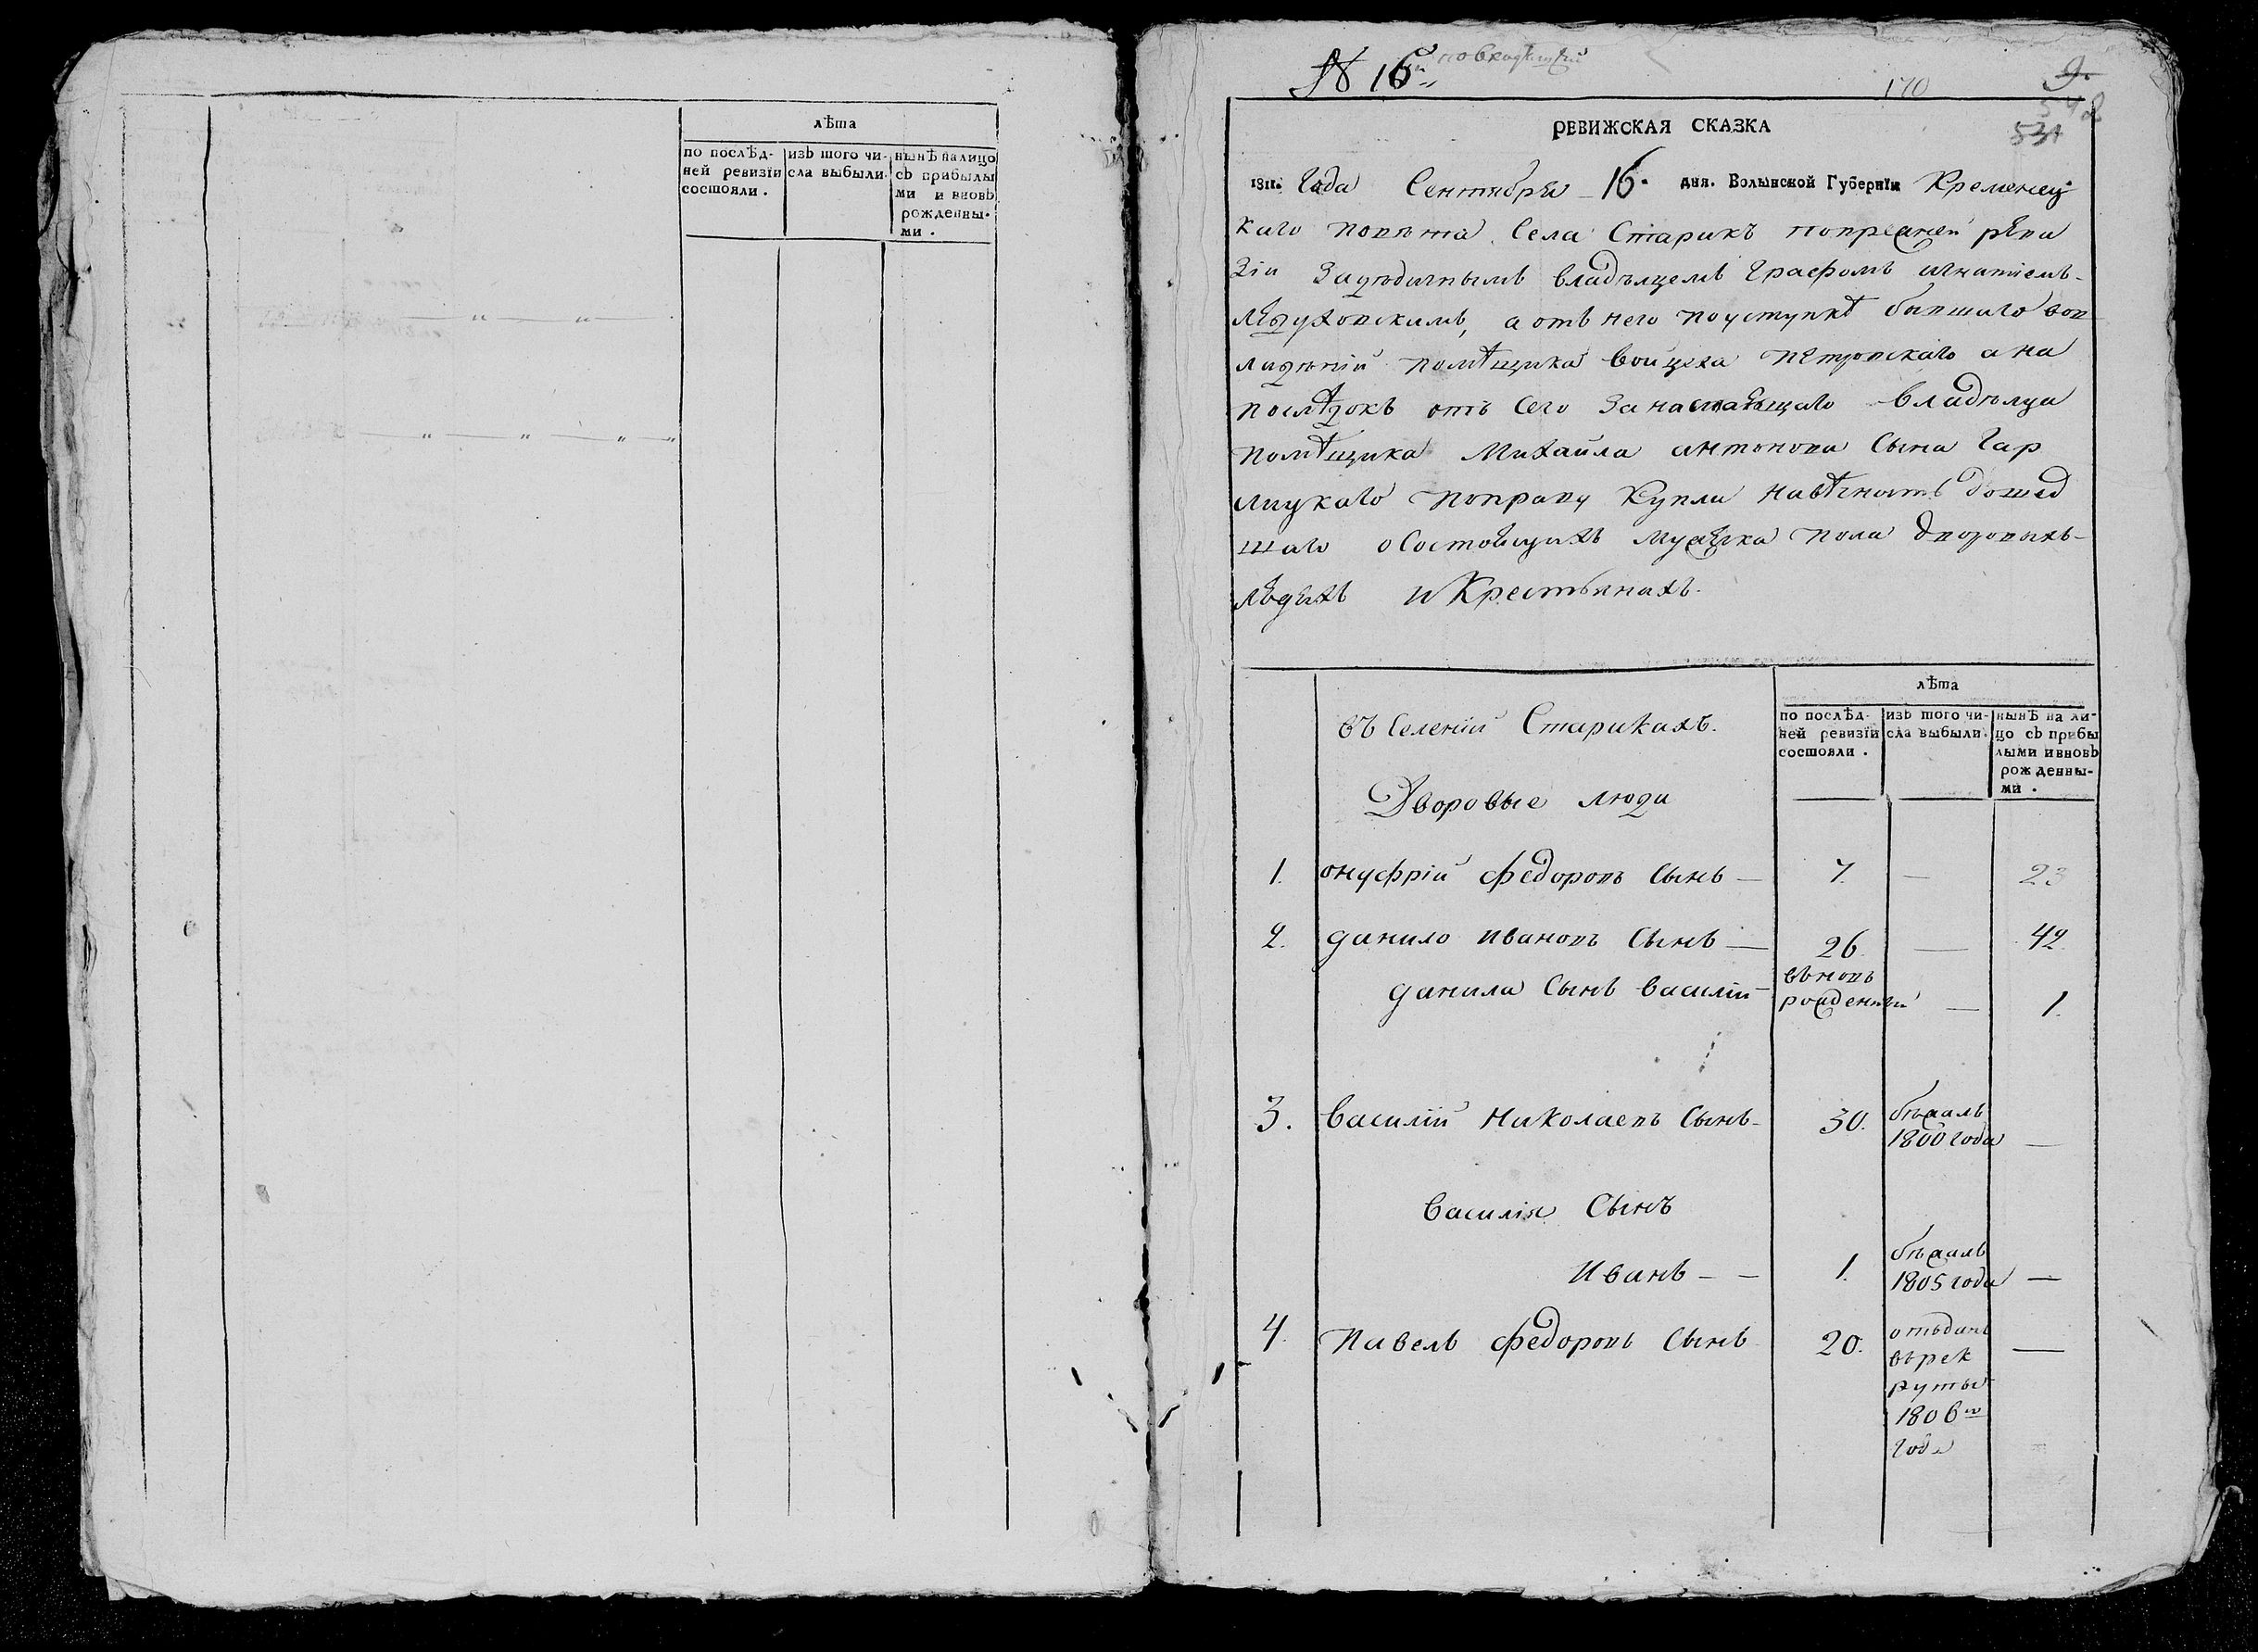 лѣта
по послѣд-
ней ревизїи
состояли.
изЪ того чи-
сла выбыли.
нынѣ на лицо
сЪ прибылы
ми и вновЬ
рожденны-
ми.
№ 16
170
9.
542
531
РЕВИЖСКАЯ СКАЗКА
1811. Года Сентября 16. дня. Волынской Губернїи Кременец
каго повѣта Села Старикъ попрежней реви
зіи Задѣдичнымъ владѣлцемъ Графомъ игнатіемъ
Лѣдуховскимъ, а отъ него поуступкѣ бывшаго вов
ладѣніи помѣщика войцеха петровскаго а на
послѣдокъ отъ Сего Занастаящаго владѣлца
помѣщика Михайла антонова Сына Гар
лицкаго поправу Купли навѣчность дошед
шаго о Состоящихъ мужеска пола дворовыхъ
людяхъ и Крестьянахъ.
лѣта
по послѣд-
ней ревизїи
состояли.
изЪ того чи-
сла выбыли.
нынѣ на ли-
цо сЪ прибы
лыми и вновЬ
рожденны-
ми.
въ Селеніи Старикахъ.
Дворовые люди
1. онуфрій федоровъ Сынъ — 7. — 23
2. данило ивановъ Сынъ — 26. — 42.
данила Сынъ василій — вѣновъ рожденный — 1.
3. василій Николаевъ Сынъ — 30. бѣжалъ 1800 года —
василія Сынъ
Иванъ — — 1. бѣжалъ 1805 года —
4. павелъ федоровъ Сынъ 20. отъданъ —
въ рек
руты
1806го
года